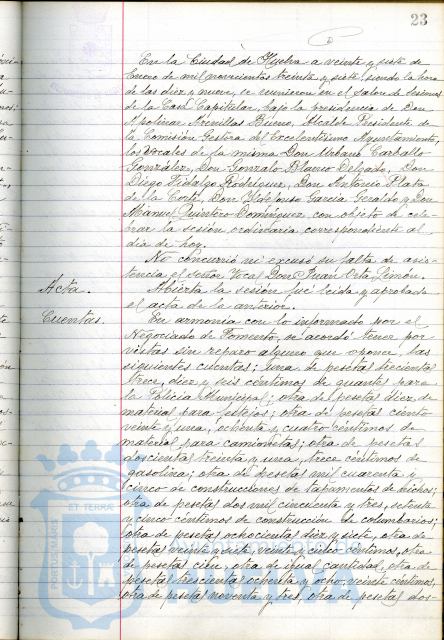 23
En la Ciudad de Huelva a veinte y siete de
Enero de mil novecientos treinta y siete, siendo la hora
de las diez y nueve, se reunieron en el salón de sesiones
de la Casa Capitular, bajo la presidencia de Don
Apolinar Arenillas Bueno, Alcalde Presidente de
la Comisión Gestora del Excelentísimo Ayuntamiento,
los vocales de la misma Don Urbano Carballo
González, Don Gonzalo Blanco Delgado, Don
Diego Fidalgo Rodríguez, Don Antonio Plata
de la Corte, Don Ildefonso García Geraldo y Don
Manuel Quintero Domínguez, con objeto de cele-
brar la sesión ordinaria correspondiente al
día de hoy.
No concurrió ni excusó su falta de asis-
tencia el señor Vocal Don Juan Orta Limón.
Acta. Abierta la sesión fué leida y aprobada
el acta de la anterior.
Cuentas. En armonía con lo informado por el
Negociado de Fomento, se acordó tener por
vistas sin reparo alguno que oponer, las
siguientes cuentas: una de pesetas trecientas
trece, diez y seis céntimos de guantes para
la Policía Municipal; otra de pesetas diez de
material para festejos; otra de pesetas ciento
veinte y una, ochenta y cuatro céntimos de
material para camionetas; otra de pesetas
doscientas treinta y una, trece céntimos de
gasolina; otra de pesetas mil cuarenta y
cinco de construcciones de tapamentos de nichos;
otra de pesetas dos mil cincuenta y tres, setenta
y cinco céntimos de construcción de columbarios;
otra de pesetas ochocientas diez y siete, otra de
pesetas veinte y siete, veinte y cinco céntimos, otra
de pesetas cien, otra de igual cantidad, otra de
pesetas trescientas ochenta y ocho, veinte céntimos,
otra de pesetas noventa y tres, otra de pesetas dos-
PORTUS MARIS
ET TERRÆ